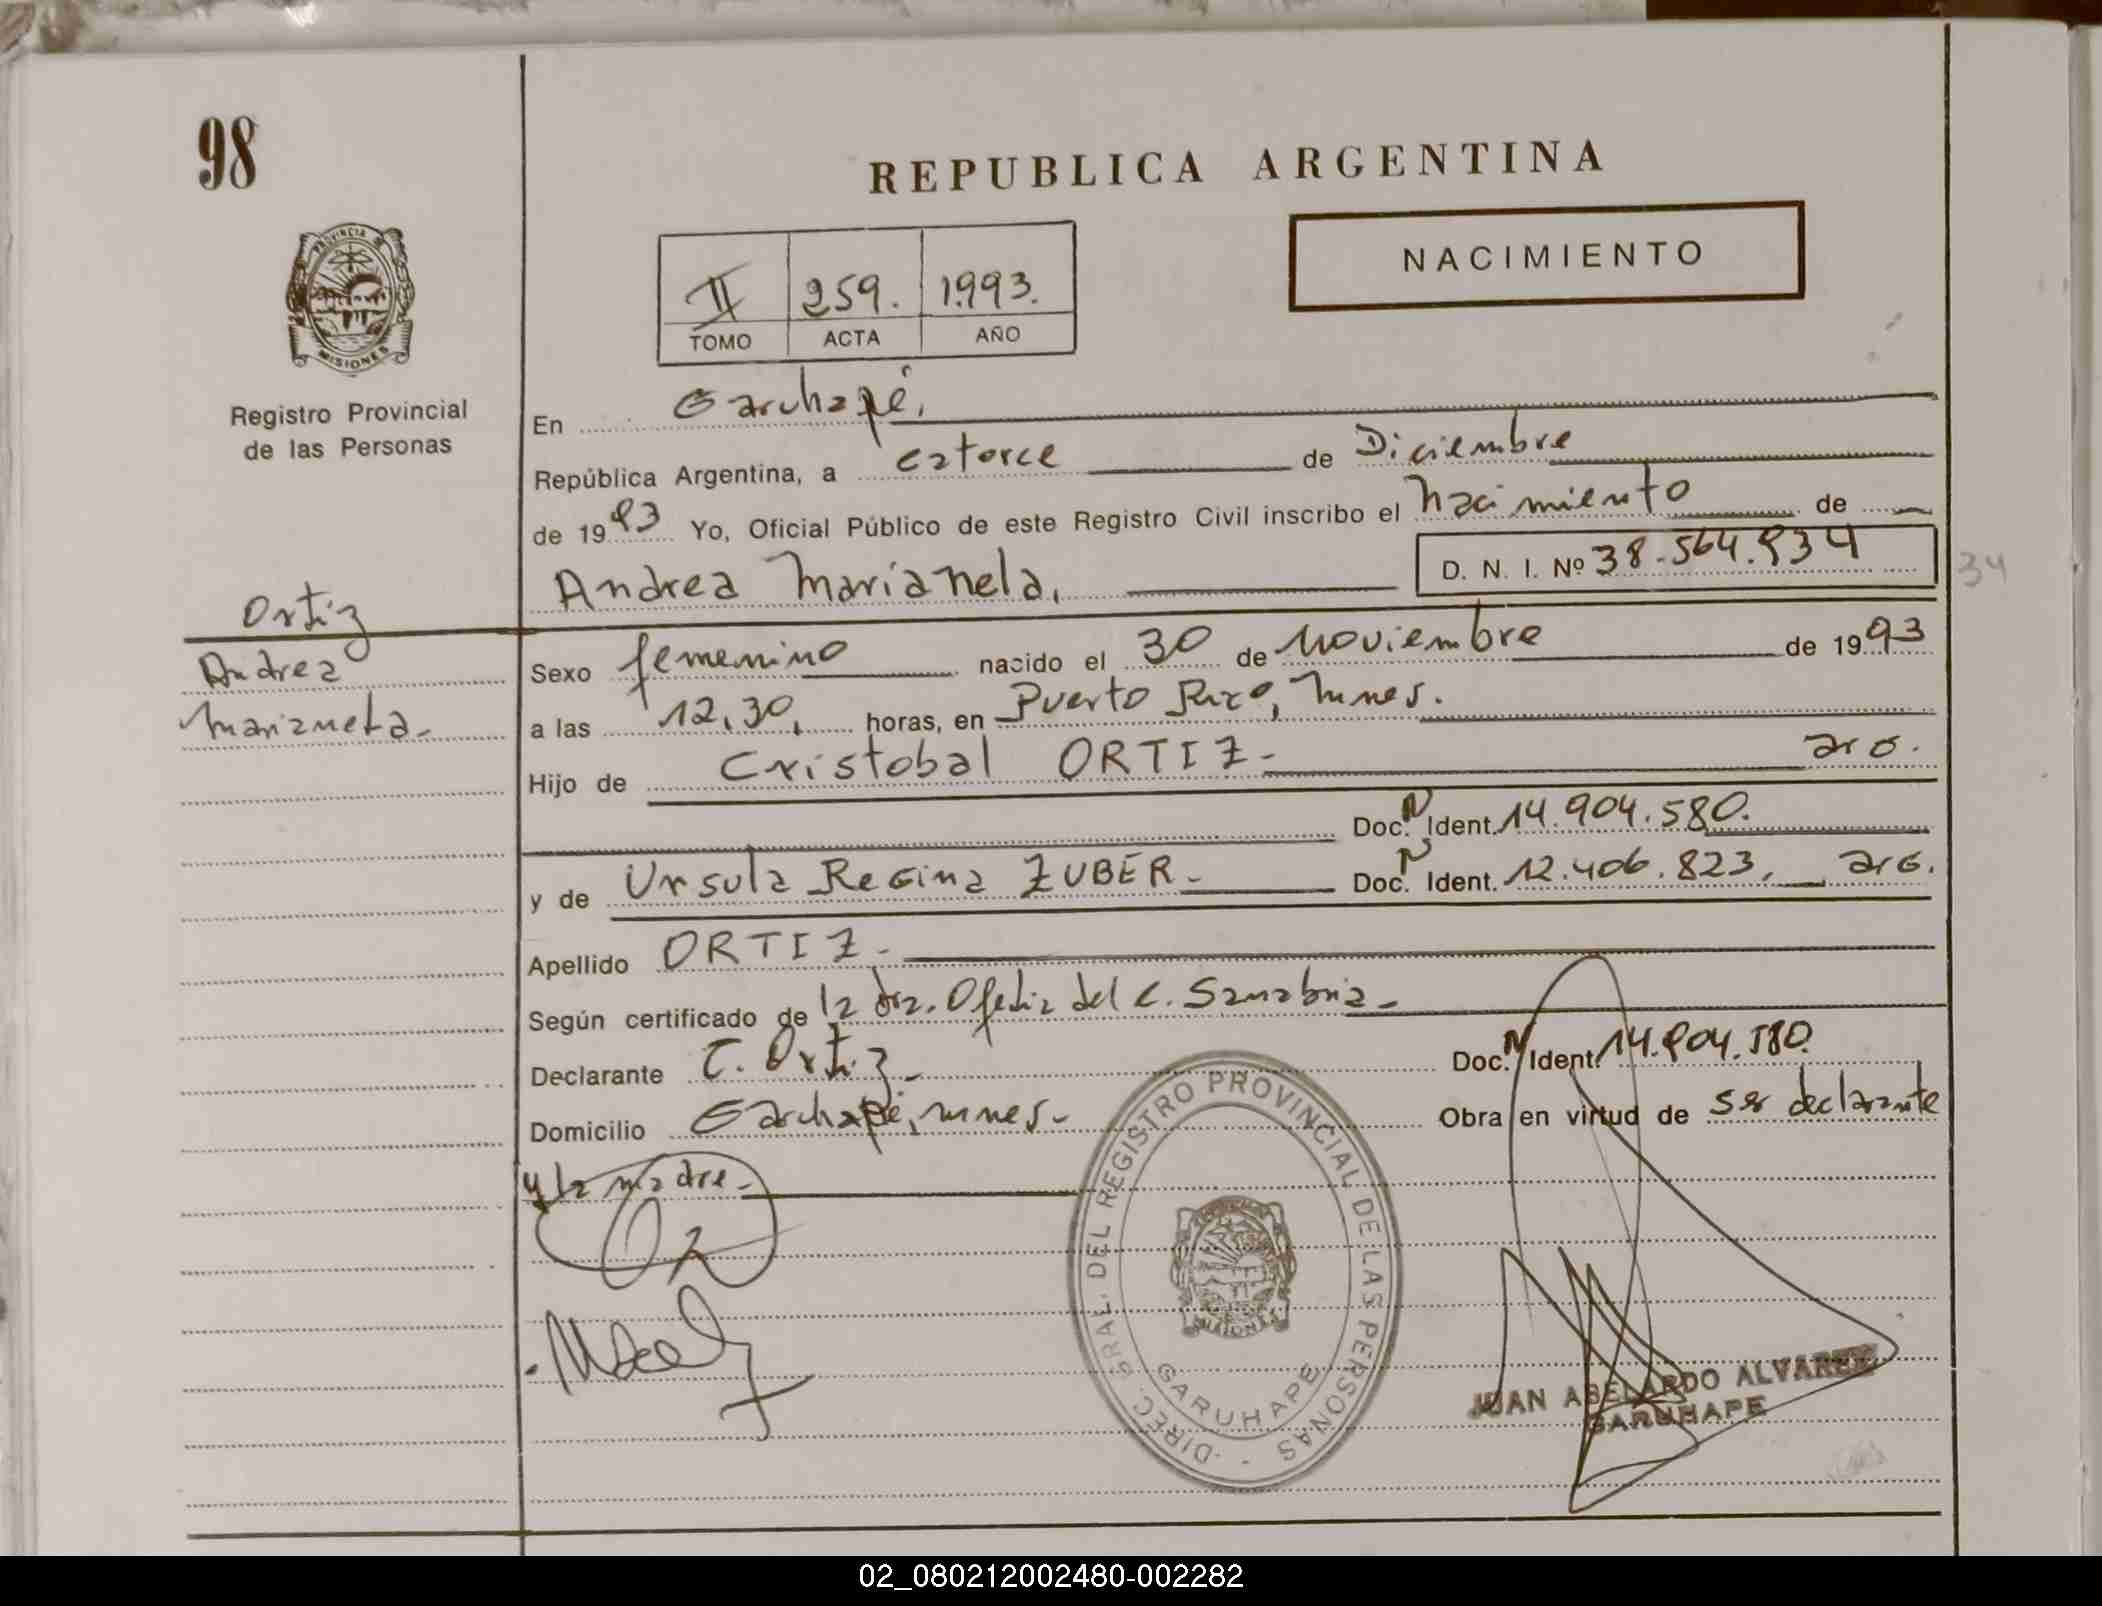 98
REPUBLICA ARGENTINA
NACIMIENTO
II 259. 1993.
TOMO ACTA AÑO
PROVINCIA DE
MISIONES
Registro Provincial
de las Personas
En Garuhapé,
República Argentina, a catorce de Diciembre
de 1993 Yo, Oficial Público de este Registro Civil inscribo el nacimiento de
Andrea Marianela, D. N. I. Nº 38.564.934
34
Ortiz
Andrea
Marianela.-
Sexo femenino nacido el 30 de Noviembre de 1993
a las 12,30, horas, en Puerto Rico, Mnes.
Hijo de Cristobal ORTIZ- arg.
Doc. N Ident. 14.904.580.
y de Ursula Regina ZUBER- Doc. N Ident. 12.406.823, arg.
Apellido ORTIZ-
Según certificado de la dra. Ofelia del C. Sanabria-
Declarante C. Ortiz- Doc. N Ident. 14.904.580.
Domicilio Garuhapé, mnes- Obra en virtud de ser declarante
y la madre-
DIREC. GRAL. DEL REGISTRO PROVINCIAL DE LAS PERSONAS -
GARUHAPE
MISIONES
JUAN ABELARDO ALVAREZ
GARUHAPE
02_080212002480-002282